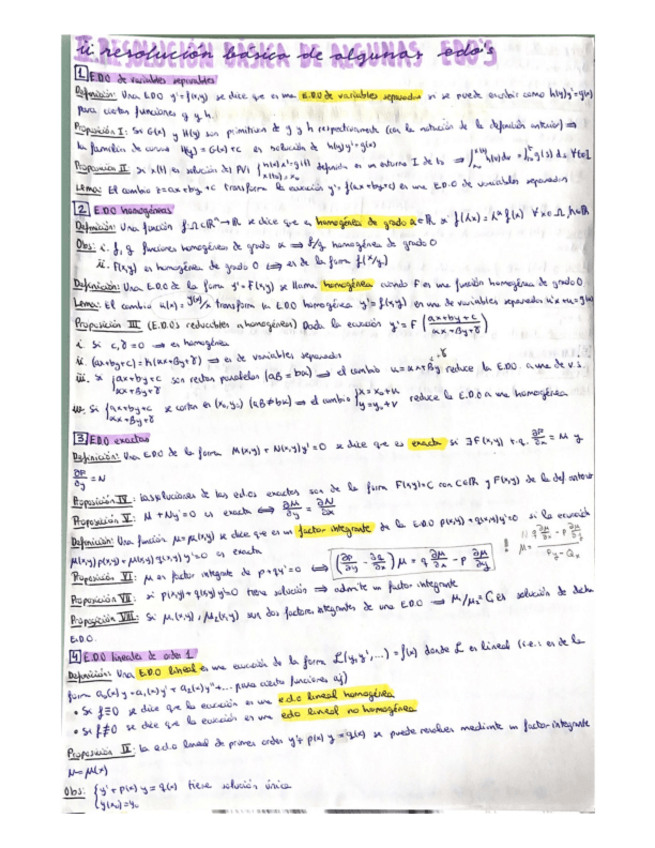 II. RESOLUCIÓN BÁSICA DE ALGUNAS EDO'S
1 EDO de variables separables
Definición: Una EDO y'=f(x,y) se dice que es una E.D.O de variables separadas si se puede escribir como h(y)y'=g(x)
para ciertas funciones g y h.
Proposición I: Si G(x) y H(y) son primitivas de g y h respectivamente (con la notación de la definición anterior) ⟹
la familia de curvas H(y)=G(x)+C es solución de h(y)y'=g(x)
Proposición II: Si x(t) es solución del PVI { h(x)x'=g(t) x(t₀)=x₀ definida en un entorno I de t₀ ⟹
Lema: El cambio z=ax+by+c transforma la ecuación y'=f(ax+by+c) en una E.D.O de variables separadas
2 E.D.O homogéneas
Definición: Una función f:Ω⊂ℝⁿ→ℝ se dice que es homogénea de grado α∈ℝ si f(λx)=λ^α f(x) ∀x∈Ω, λ∈ℝ
Obs: i. f, g funciones homogéneas de grado α ⟹ f/g homogénea de grado 0
ii. F(x,y) es homogénea de grado 0 ⟺ es de la forma f(y/x)
Definición: Una E.D.O de la forma y'=F(x,y) se llama homogénea cuando F es una función homogénea de grado 0.
Lema: El cambio u(x)=y(x)/x transforma la EDO homogénea y'=f(x,y) en una de variables separadas
Proposición III (E.D.Os reducibles a homogéneas) Dada la ecuación y'=F((ax+by+c)/(αx+βy+γ))
i. Si c,γ=0 ⟹ es homogénea
ii. (ax+by+c)=K(αx+βy+γ) ⟹ es de variables separadas
iii. Si { ax+by+c αx+βy+γ son rectas paralelas (aβ=bα) ⟹ el cambio u=αx+βy reduce la E.D.O. a una de v.s.
iv. Si { ax+by+c αx+βy+γ se cortan en (x₀,y₀) (aβ≠bα) ⟹ el cambio { x=x₀+u y=y₀+v reduce la E.D.O a una homogénea
3 EDO exactas
Definición: Una EDO de la forma M(x,y)+N(x,y)y'=0 se dice que es exacta si ∃F(x,y) t.q. ∂F/∂x=M y
∂F/∂y=N
Proposición IV: Las soluciones de las edos exactas son de la forma F(x,y)=C con C∈ℝ y F(x,y) de la def anterior
Proposición V: M+Ny'=0 es exacta ⟺ ∂M/∂y=∂N/∂x
Definición: Una función μ=μ(x,y) se dice que es un factor integrante de la E.D.O p(x,y)+q(x,y)y'=0 si la ecuación
μ(x,y)p(x,y)+μ(x,y)q(x,y)y'=0 es exacta
Proposición VI: μ es factor integrante de p+qy'=0 ⟺ (∂p/∂y-∂q/∂x)μ=q ∂μ/∂x-p ∂μ/∂y
Proposición VII: si p(x,y)+q(x,y)y'=0 tiene solución ⟹ admite un factor integrante
Proposición VIII: Si μ₁(x,y), μ₂(x,y) son dos factores integrantes de una E.D.O ⟹ μ₁/μ₂=C es solución de dicha
E.D.O.
4 E.D.O lineales de orden 1
Definición: Una E.D.O lineal es una ecuación de la forma L(y,y',...)=f(x) donde L es lineal (i.e.: es de la
forma a₀(x)y+a₁(x)y'+a₂(x)y''+... para ciertas funciones aⱼ)
• Si f≡0 se dice que la ecuación es una edo lineal homogénea
• Si f≢0 se dice que la ecuación es una edo lineal no homogénea
Proposición IX: La edo lineal de primer orden y'+p(x)y=q(x) se puede resolver mediante un factor integrante
μ=μ(x)
Obs: { y'+p(x)y=q(x) tiene solución única
y(x₀)=y₀